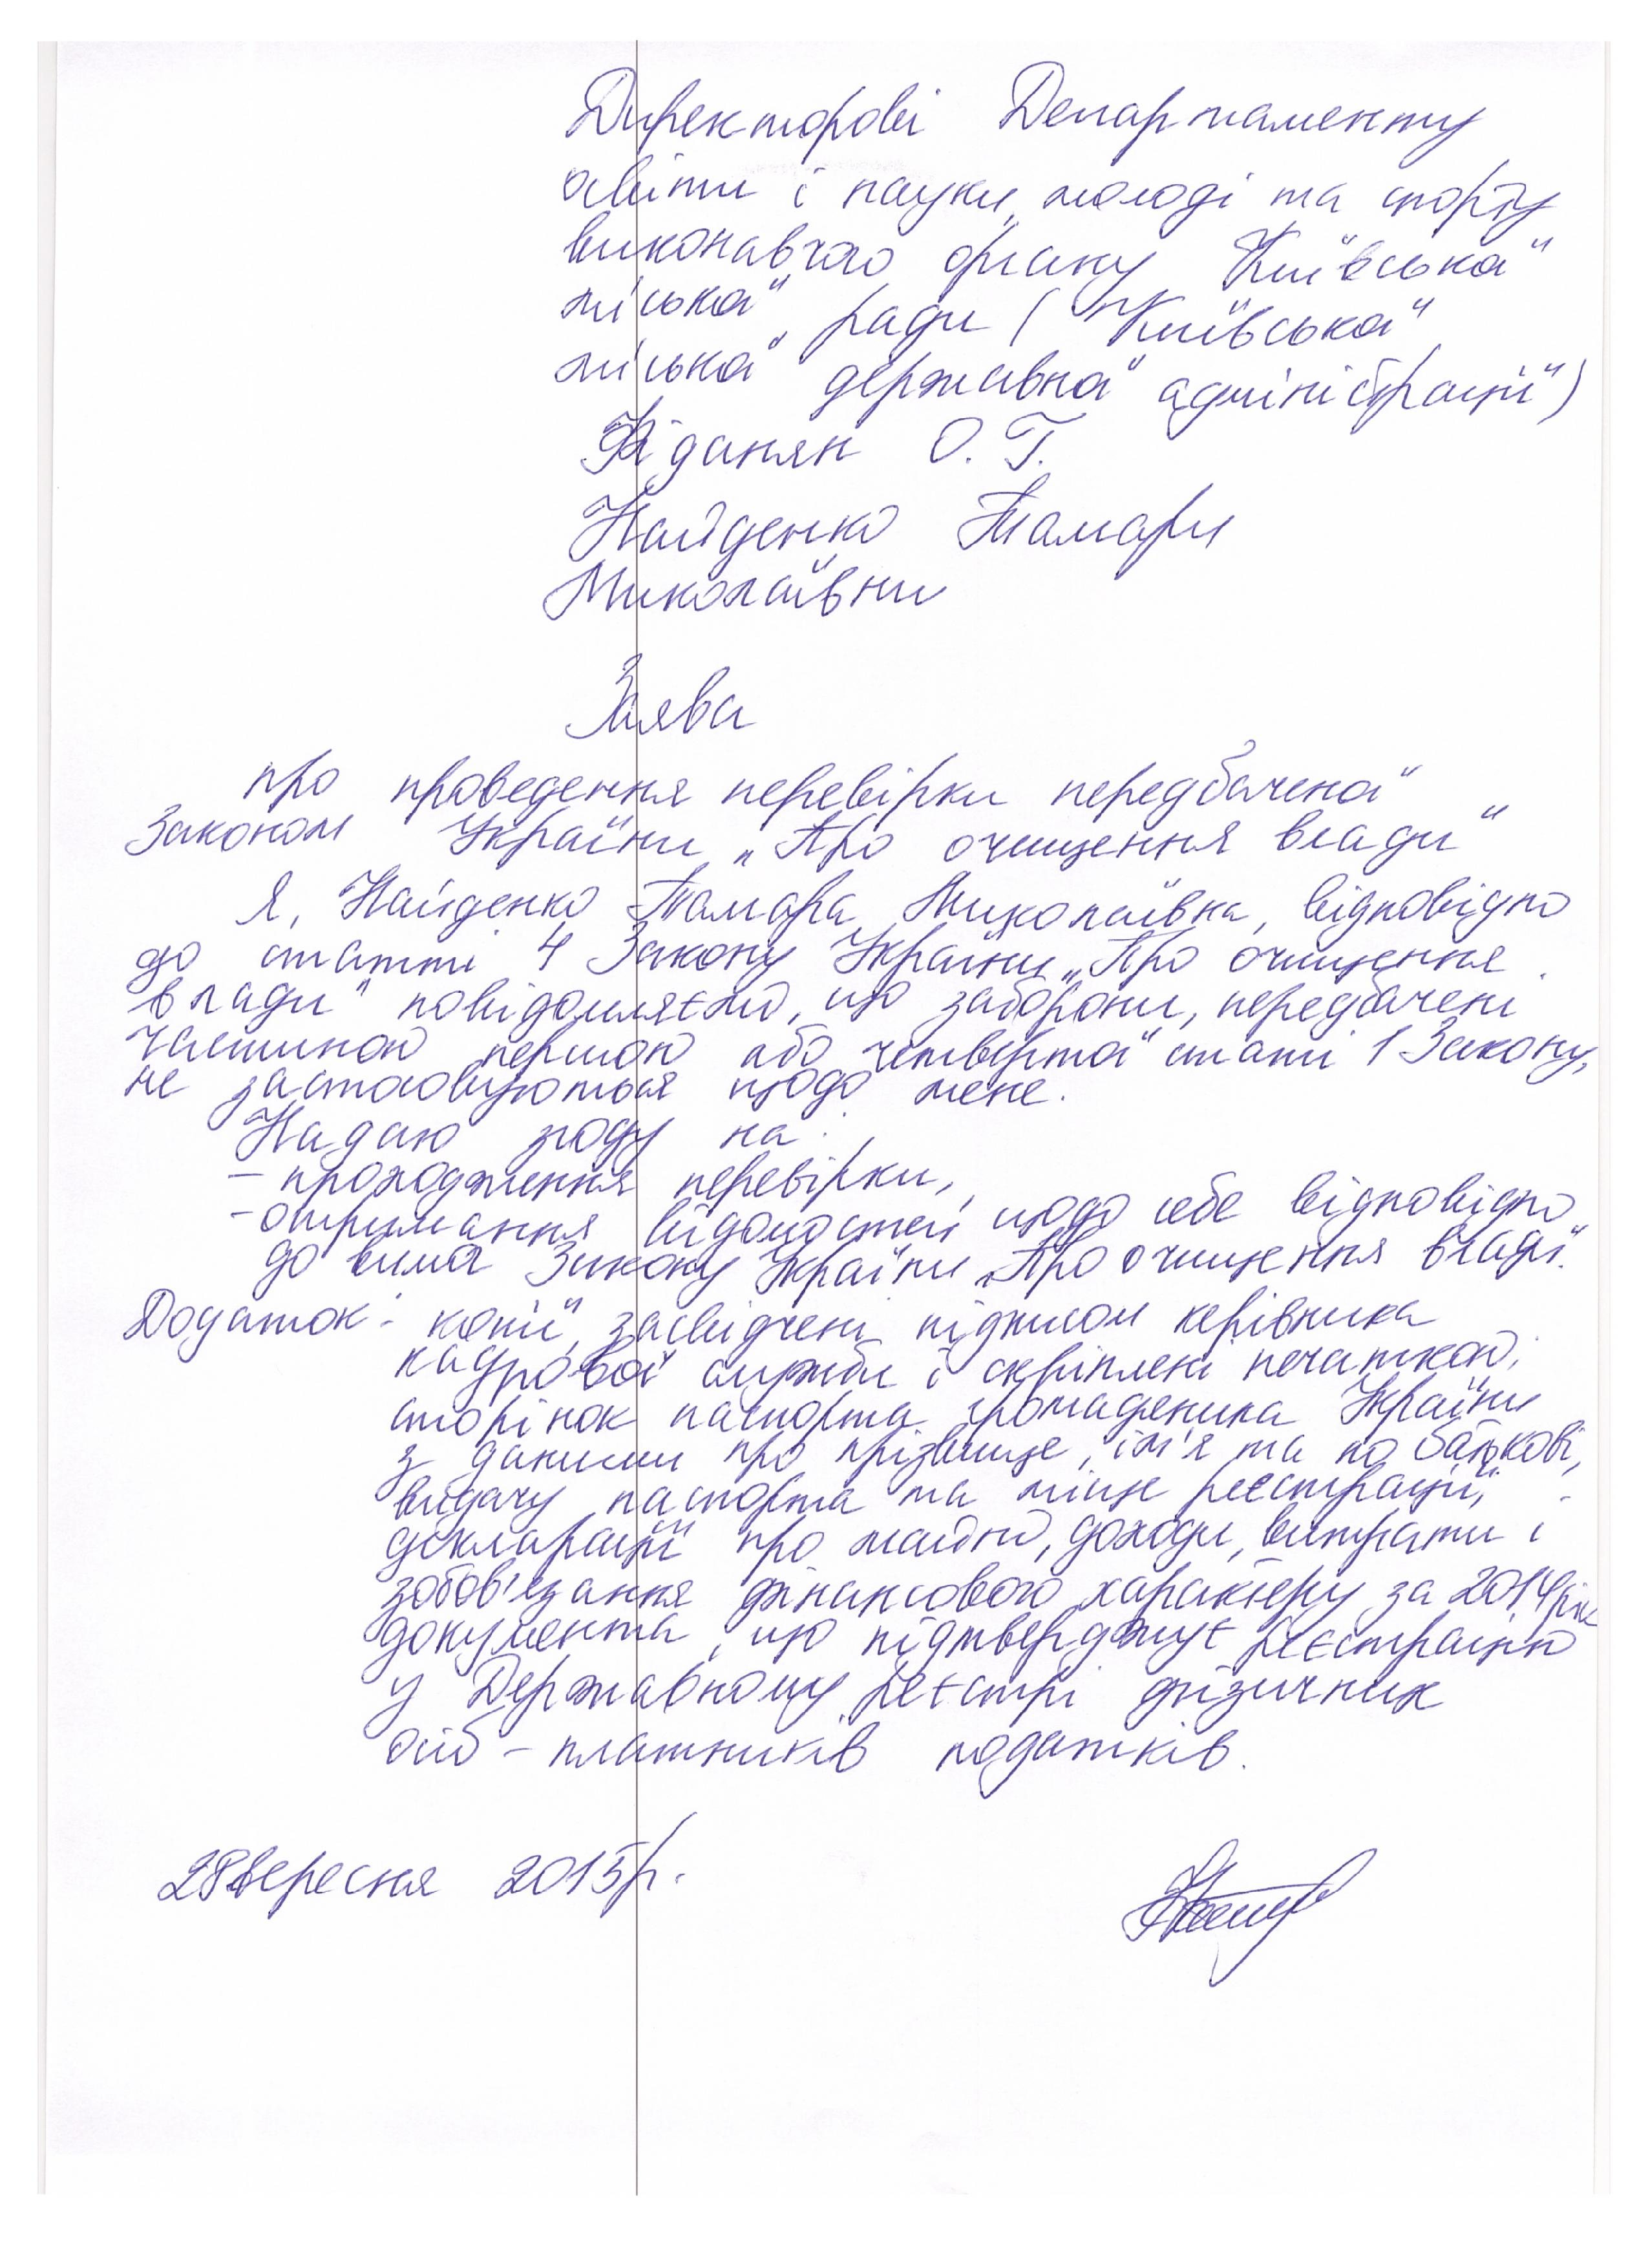 Директорові Департаменту
освіти і науки, молоді та спорту
виконавчого органу Київської
міської ради (Київської
міської державної адміністрації)
Фіданян О. Г.
Найденко Тамари
Миколаївни
Заява
про проведення перевірки передбаченої
Законом України „Про очищення влади"
Я, Найденко Тамара Миколаївна, відповідно
до статті 4 Закону України „Про очищення
влади" повідомляємо, що заборони, передбачені
частиною першою або четвертої статі 1 Закону,
не застосовуються щодо мене.
Надаю згоду на:
- проходження перевірки,
- отримання відомостей щодо себе відповідно
до вимог Закону України „Про очищення влади".
Додаток: копії, засвідчені підписом керівника
кадрової служби і скріплені печаткою,
сторінок паспорта громадянина України
з даними про прізвище, ім'я та по батькові,
видачу паспорта та місце реєстрації,
декларації про майно, доходи, витрати і
зобов'язання фінансового характеру за 2014 рік
документа, що підтверджує реєстрацію
у Державному реєстрі фізичних
осіб - платників податків.
28 вересня 2015 р.